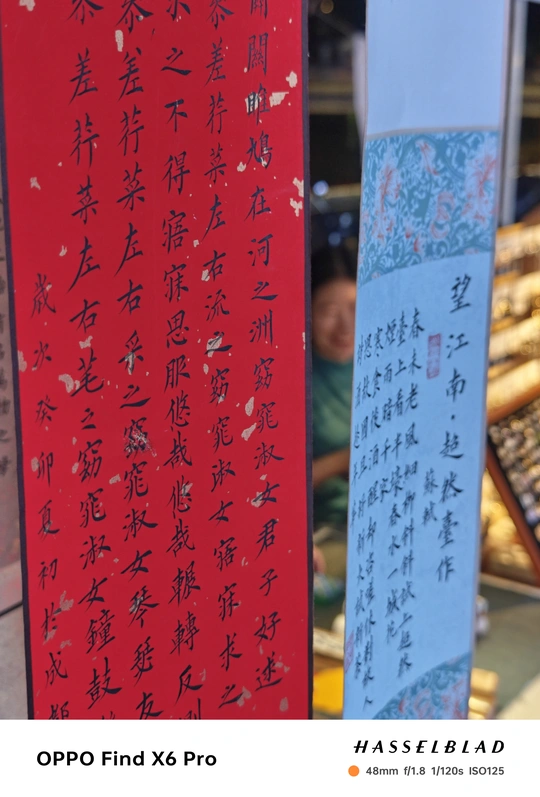 關關雎鳩在河之洲窈窕淑女君子好逑
參差荇菜左右流之窈窕淑女寤寐求之
求之不得寤寐思服悠哉悠哉輾轉反側
參差荇菜左右采之窈窕淑女琴瑟友
參差荇菜左右芼之窈窕淑女鐘鼓
歲次癸卯夏初於成都
望江南·超然臺作
蘇軾
春未老風細柳斜斜試上超然
臺上看半壕春水一城花
煙雨暗千家
寒食後酒醒卻咨嗟休對故人
思故國且將新火試新茶
OPPO Find X6 Pro
HASSELBLAD
48mm f/1.8 1/120s ISO125